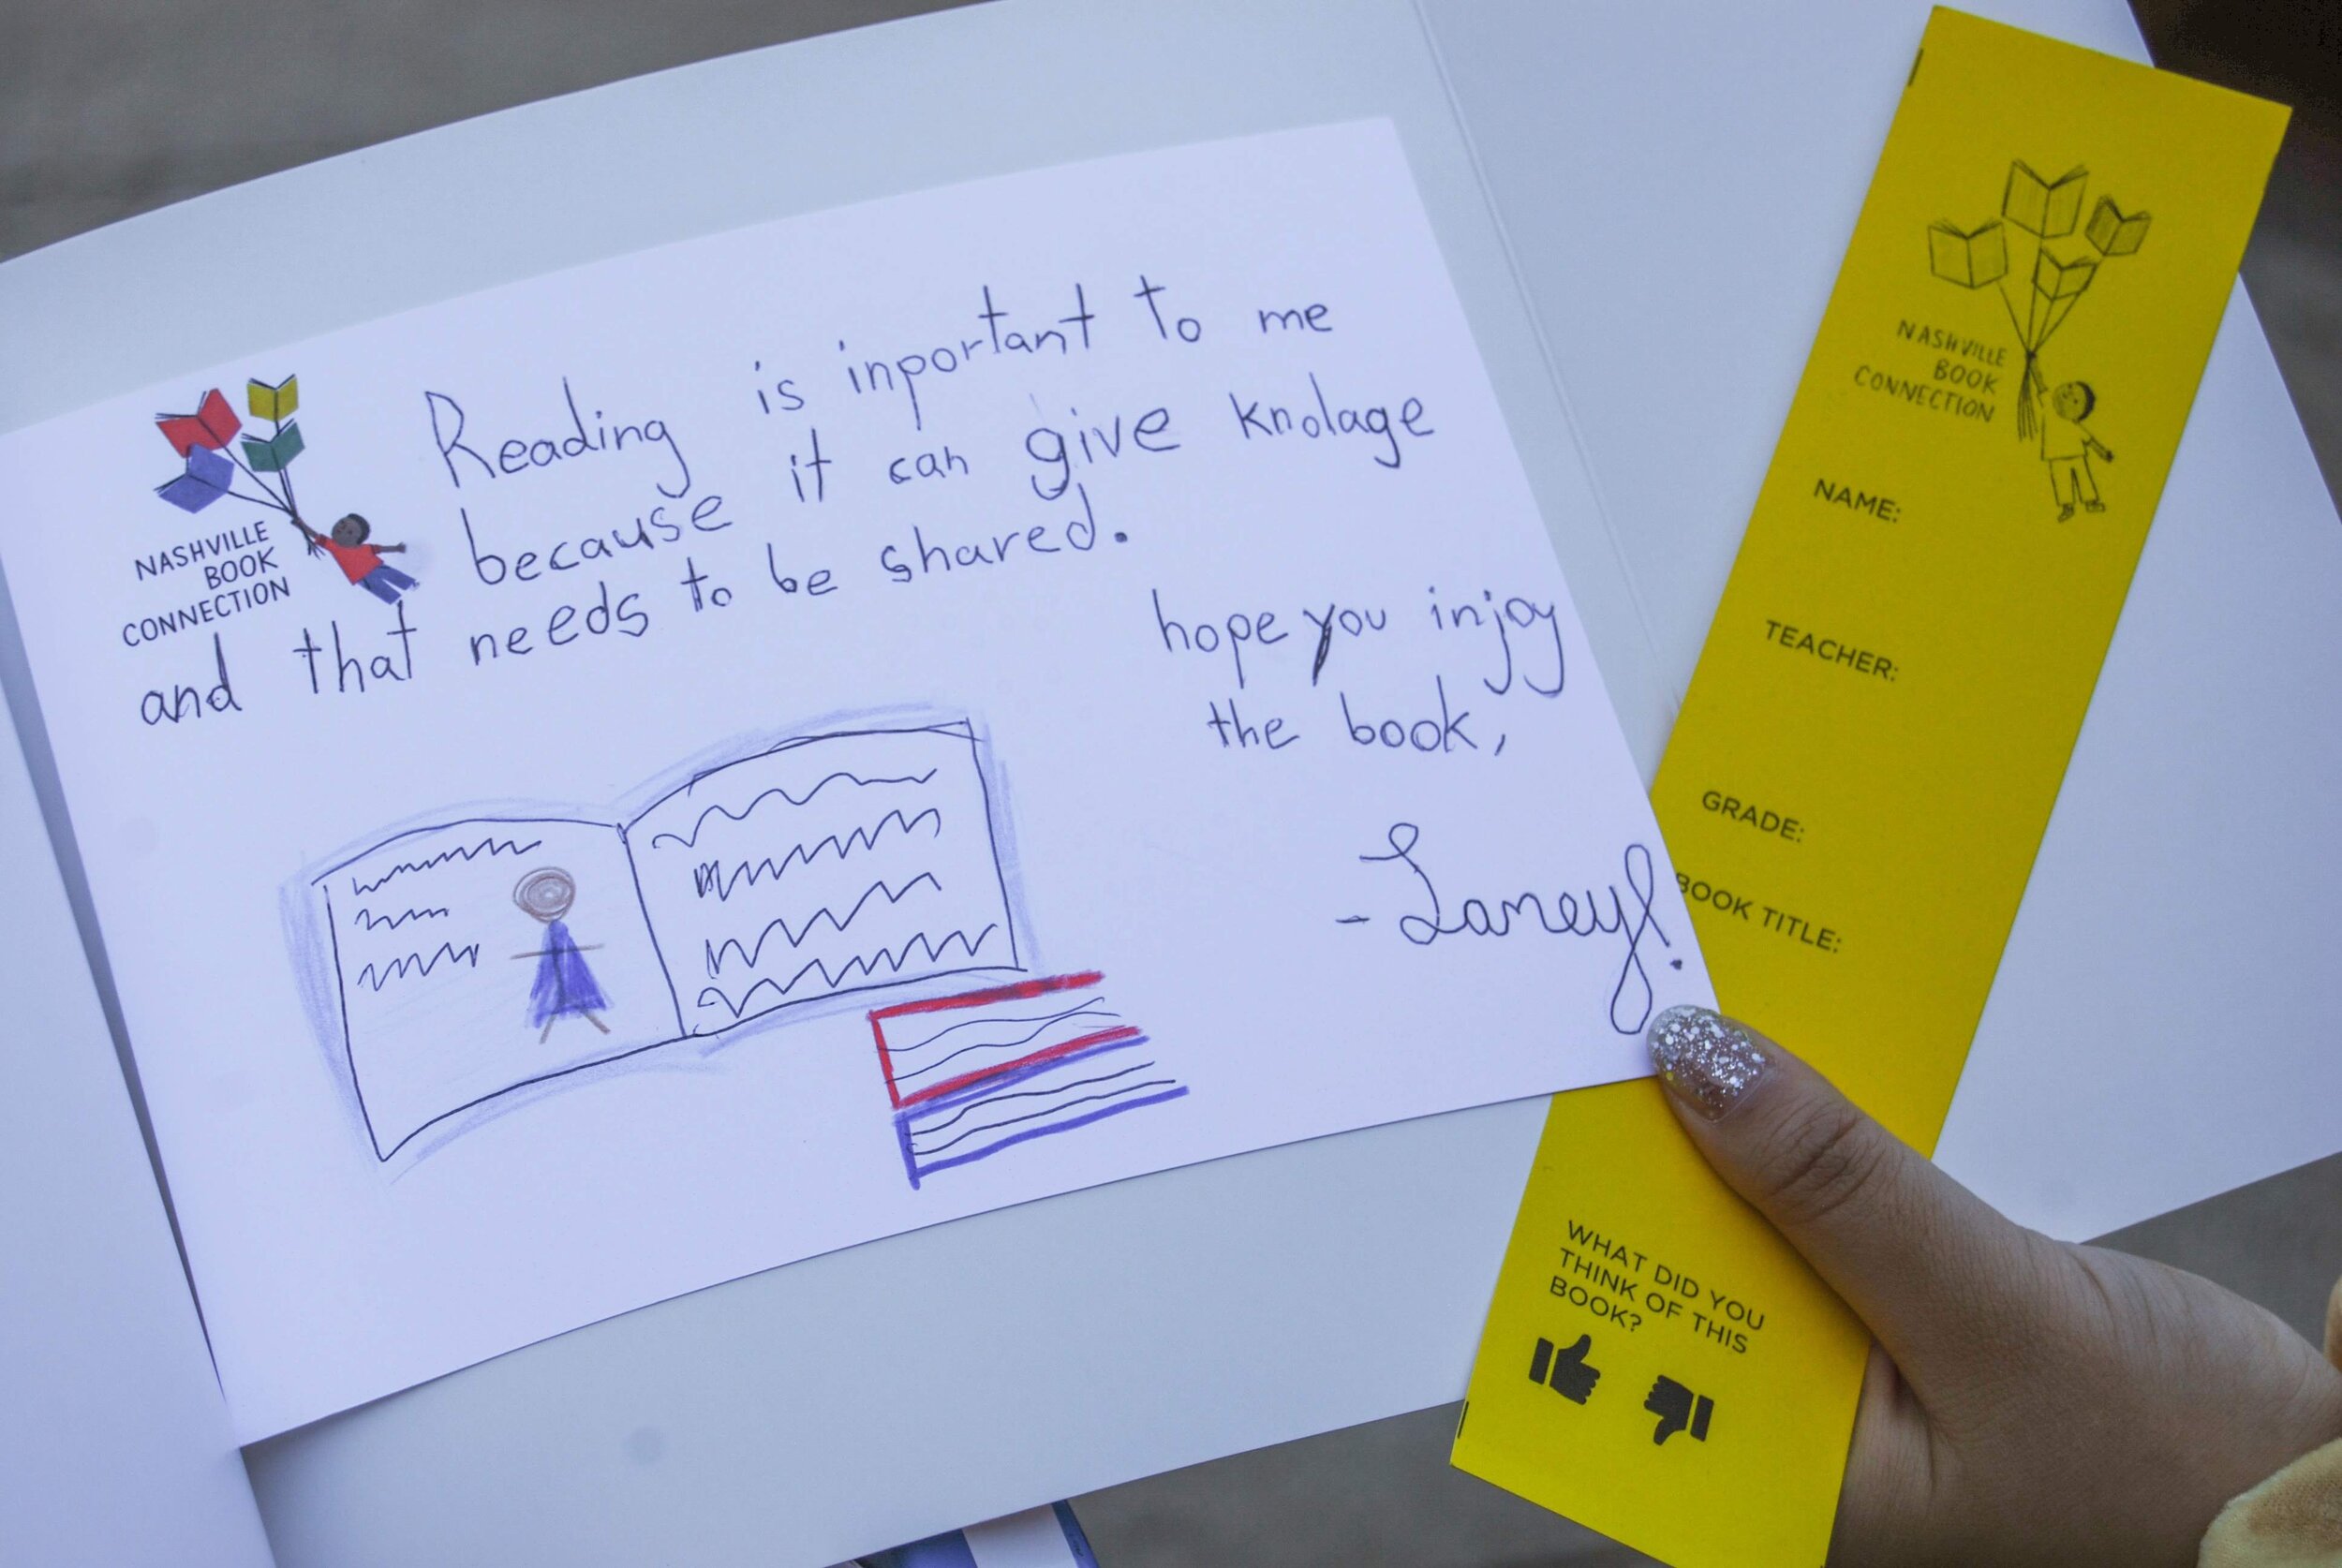 NASHVILLE
BOOK
CONNECTION
Reading is inportant to me
because it can give knolage
and that needs to be shared.
hope you injoy
the book,
-Laney!
NASHVILLE
BOOK
CONNECTION
NAME:
TEACHER:
GRADE:
BOOK TITLE:
WHAT DID YOU
THINK OF THIS
BOOK?